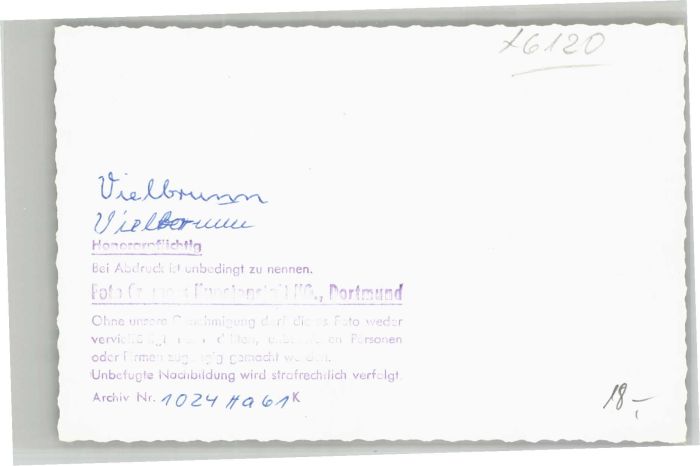 x6120
Vielbrunn
Vielbrunn
Honorarpflichtig
Bei Abdruck ist unbedingt zu nennen.
Foto Kunstanstalt KG., Dortmund
Ohne unsere Genehmigung darf dieses Foto weder
vervielfältigt noch dritten, unbefugten Personen
oder Firmen zugängig gemacht werden.
Unbefugte Nachbildung wird strafrechtlich verfolgt.
Archiv Nr. 1024 Ha 61 K
18,-